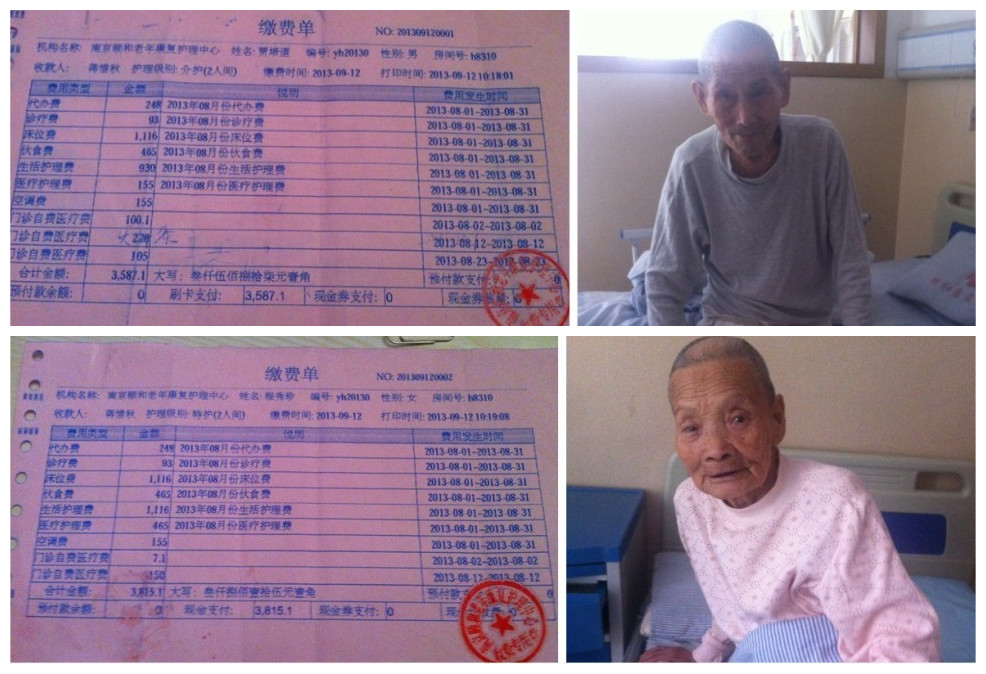 缴费单
NO: 201309120001
机构名称: 南京颐和老年康复护理中心 姓名: 贾培道 编号: yh20130 性别: 男 房间号: h8310
收款人: 蒋惜秋 护理级别: 介护(2人间) 缴费时间: 2013-09-12 打印时间: 2013-09-12 10:18:01
费用类型 金额 说明 费用发生时间
代办费 248 2013年08月份代办费 2013-08-01~2013-08-31
诊疗费 93 2013年08月份诊疗费 2013-08-01~2013-08-31
床位费 1,116 2013年08月份床位费 2013-08-01~2013-08-31
伙食费 465 2013年08月份伙食费 2013-08-01~2013-08-31
生活护理费 930 2013年08月份生活护理费 2013-08-01~2013-08-31
医疗护理费 155 2013年08月份医疗护理费 2013-08-01~2013-08-31
空调费 155 2013-08-01~2013-08-31
门诊自费医疗费 100.1 2013-08-02~2013-08-02
门诊自费医疗费 220 2013-08-12~2013-08-12
门诊自费医疗费 105 2013-08-23~2013-08-23
合计金额: 3,587.1 大写: 叁仟伍佰捌拾柒元壹角 预付款支
预付款余额: 0 刷卡支付: 3,587.1 现金券支付: 0 现金券 0
缴费单
NO: 201309120002
机构名称: 南京颐和老年康复护理中心 姓名: 程秀珍 编号: yh20130 性别: 女 房间号: h8310
收款人: 蒋惜秋 护理级别: 特护(2人间) 缴费时间: 2013-09-12 打印时间: 2013-09-12 10:19:08
费用类型 金额 说明 费用发生时间
代办费 248 2013年08月份代办费 2013-08-01~2013-08-31
诊疗费 93 2013年08月份诊疗费 2013-08-01~2013-08-31
床位费 1,116 2013年08月份床位费 2013-08-01~2013-08-31
伙食费 465 2013年08月份伙食费 2013-08-01~2013-08-31
生活护理费 1,116 2013年08月份生活护理费 2013-08-01~2013-08-31
医疗护理费 465 2013年08月份医疗护理费 2013-08-01~2013-08-31
空调费 155 2013-08-01~2013-08-31
门诊自费医疗费 7.1 2013-08-02~2013-08-02
门诊自费医疗费 150 2013-08-12~2013-08-12
合计金额: 3,815.1 大写: 叁仟捌佰壹拾伍元壹角 预付款 0
预付款余额: 0 现金支付: 3,815.1 现金券支付: 0 现 0